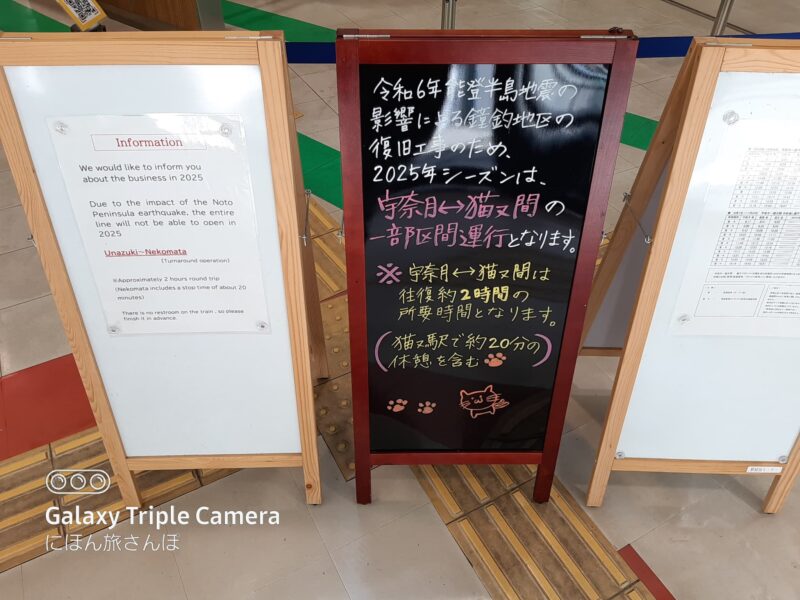 Information
We would like to inform you
about the business in 2025
Due to the impact of the Noto
Peninsula earthquake, the entire
line will not be able to open in
2025
Unazuki~Nekomata
(Turnaround operation)
※Approximately 2 hours round trip
(Nekomata includes a stop time of about 20
minutes)
There is no restroom on the train , so please
finish it in advance.
令和6年能登半島地震の
影響による鐘釣地区の
復旧工事のため、
2025年シーズンは、
宇奈月↔猫又間の
一部区間運行となります。
※ 宇奈月↔猫又間は
往復約2時間の
所要時間となります。
(猫又駅で約20分の
休憩を含む)
Galaxy Triple Camera
にほん旅さんぽ